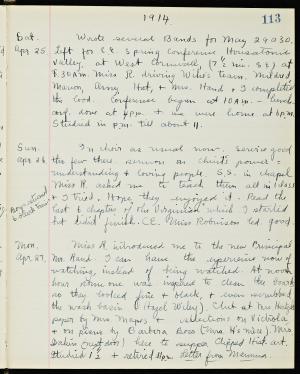 1914
113
Sat.
Apr 25.
Wrote several Bands for May 29 & 30.
Left for S.S. Spring Conference Housatonic
Valley, at West Cornwall, (7½ mi. S.E.) at
8.30 A.M. Miss R. driving Wike's team. Mildred
Marion, Amy Hoet, & Mrs. Hand & I completed
the load. Conference began at 10 A.M. – lunch
conf. done at 4 P.M. & we were home at 6 P.M.
Studied in P.M. till about 11.
Sun.
Apr 26
In choir as usual now. Service good
tho few there. Sermon on Christ's power
understanding & loving people. S.S. in chapel
Miss R. asked me to teach them all in 1 class
& I tried. Hope they enjoyed it. Read the
last 6 chapters of the Virginian which I started
but didn't finish. C.E. Miss Robinson led. good.
Mon.
Apr 27.
Miss R. introduced me to the new Principal
Mr. Hand. I can have the experience now of
watching, instead of being watched. At noon
hour some one was inspired to clean the boards
so they looked fine & black, & even scrubbed
the wash basin (Hazel Wiley). Club at Mrs.
paper by Mrs. Mapes & selections on Victrola
& on piano by Barbara Boss (Mrs.) Mrs.
Dakin (next door) here to supper. Clipped Hist. art.
Studied 1 & retired 11 P.M. letter from Mamma.